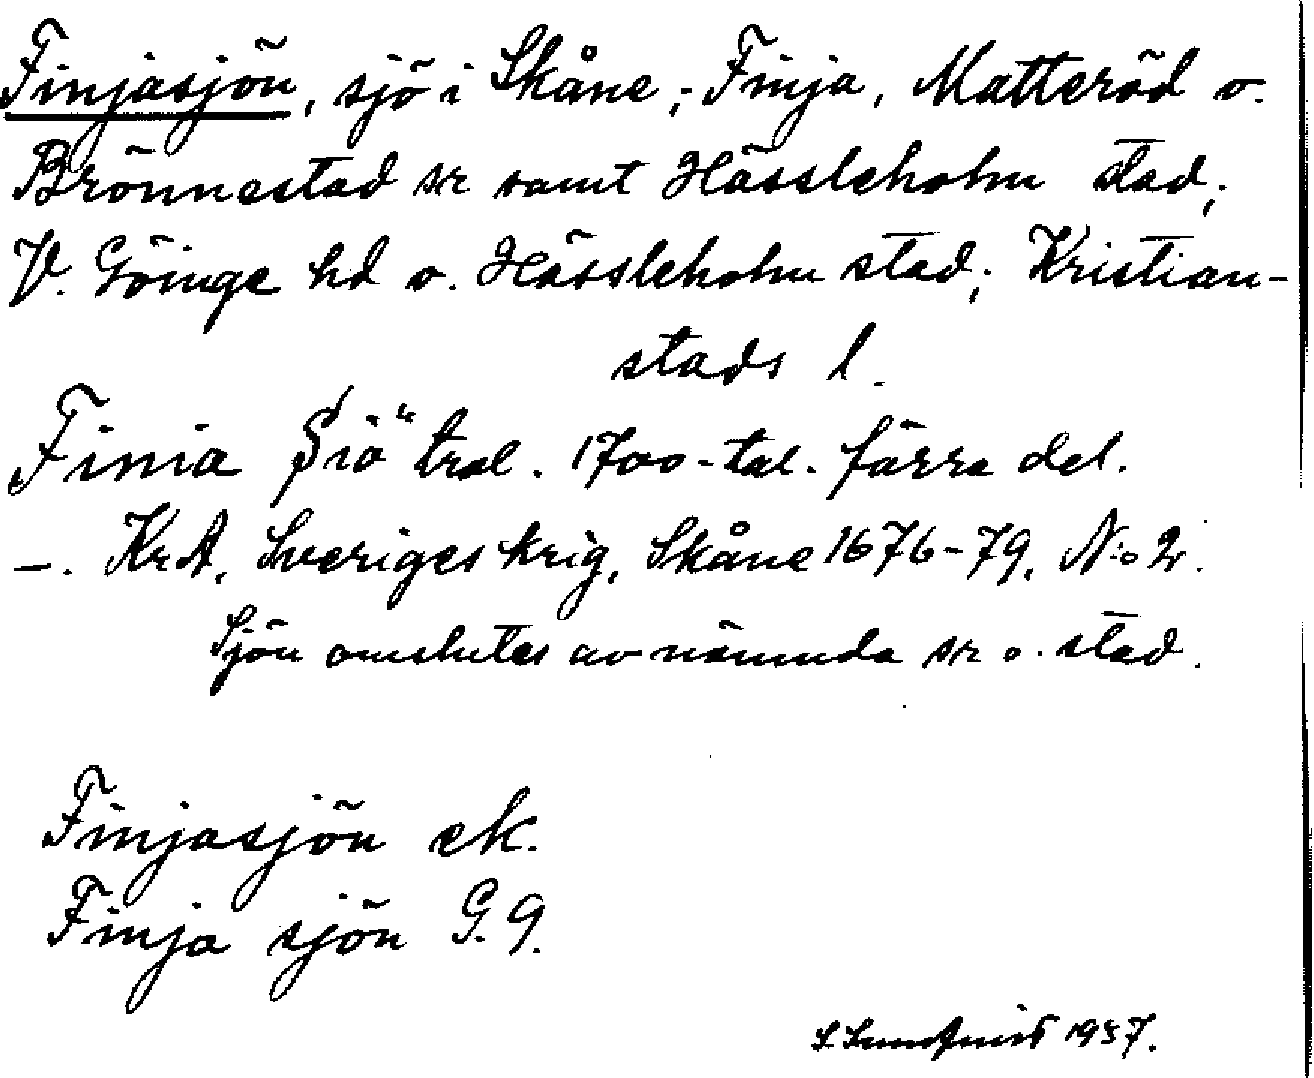 Finjasjön, sjö i Skåne; Finja, Matteröd o.
Brönnestad sr samt Hässleholm stad;
V. Göinge hd o. Hässleholm stad; Kristian-
stads l.
Finia Siö tral. 1700-tal. förra del.
–. KrA, Sveriges krig, Skåne 1676-79, N:o 2.
Sjön omslutes av nämnda sr o. stad.
Finjasjön ek.
Finja sjön G. 9.
1937.